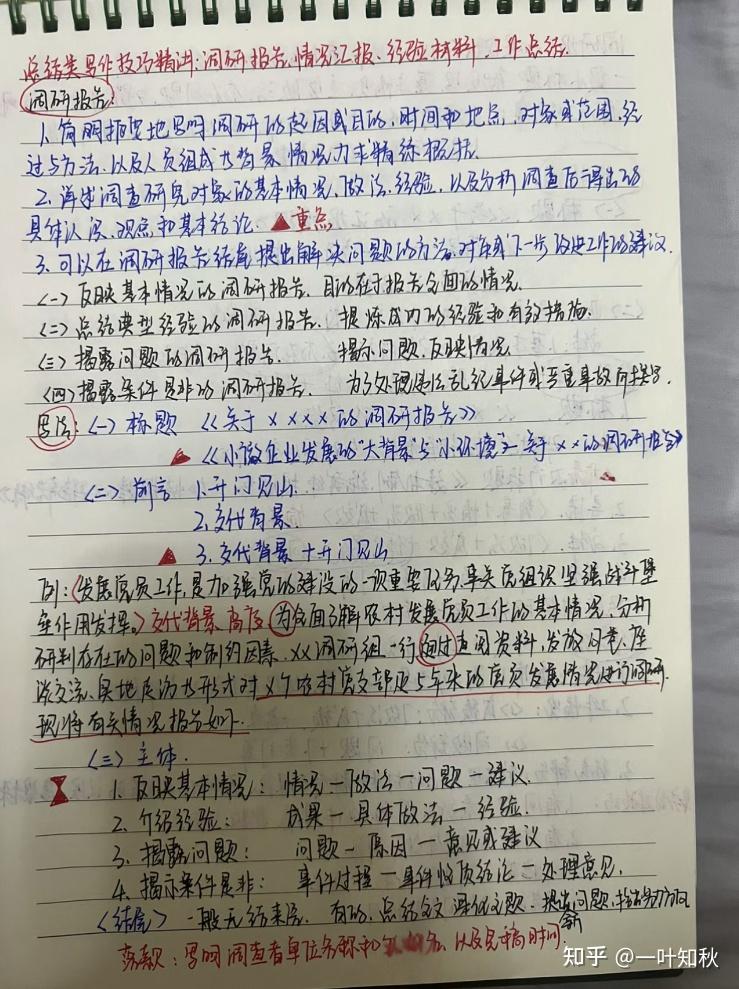 总结类写作技巧精讲:调研报告、情况汇报、经验材料、工作总结.
调研报告:
1.简明扼要地写明调研的起因或目的、时间和地点、对象或范围、经
过与方法、以及人员组成等背景情况力求精练概括.
2.详述调查研究对象的基本情况、做法、经验、以及分析调查后得出的
具体认识、观点和基本结论. ▲重点
3.可以在调研报告结尾提出解决问题的方法、对策或下一步改进工作的建议.
<一>反映基本情况的调研报告. 目的在于报告全面的情况.
<二>总结典型经验的调研报告. 提炼成功的经验和有效措施.
<三>揭露问题的调研报告. 揭示问题、反映情况.
<四>揭露案件是非的调研报告. 为了处理违法乱纪事件或严重事故而撰写.
写法: <一>标题 《关于××××的调研报告》
▲《小微企业发展的“大背景”与“小环境”—关于××的调研报告》
<二>前言 1.开门见山.
2.交代背景.
▲ 3.交代背景+开门见山
例:(发展党员工作,是加强党的建设的一项重要任务,事关党组织坚强战斗堡
垒作用发挥。)交代背景 高度 为全面了解农村发展党员工作的基本情况,分析
研判存在的问题和制约因素,××调研组一行通过查阅资料,发放问卷、座
谈交流、实地走访等形式对×个农村党支部近5年来的党员发展情况进行了调研.
现将有关情况报告如下.
<三>主体.
1.反映基本情况: 情况—做法—问题—建议.
2.介绍经验: 成果—具体做法—经验.
3.揭露问题: 问题—原因—意见或建议
4.揭示案件是非: 事件过程—事件性质结论—处理意见.
<结尾>一般无结束语. 有的,总结全文深化主题. 提出新问题,指出努力方向
落款:写明调查者单位名称和 以及完稿时间.
知乎 @一叶知秋